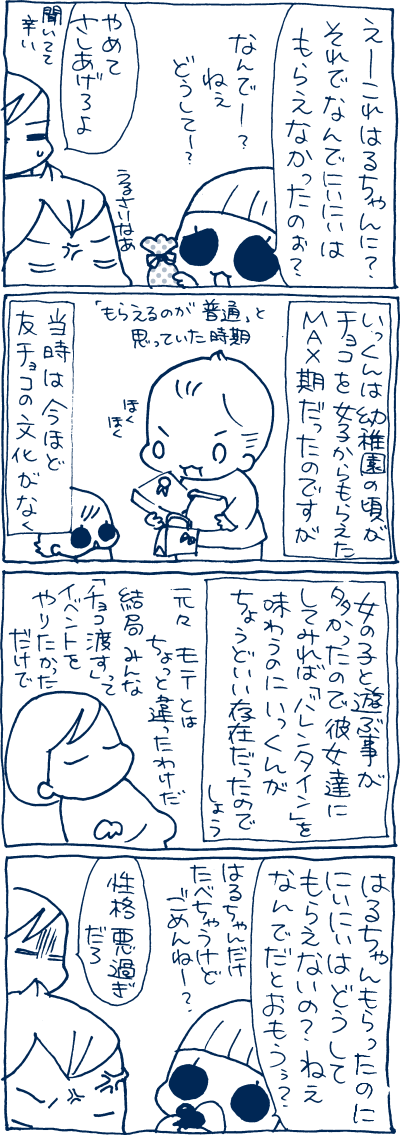 えーこれはるちゃんに？
それでなんでにいにいは
もらえなかったのぉ？
なんでー？
ねぇ
どうしてー？
うるさいなあ
やめて
さしあげろよ
聞いてて
辛い
いっくんは幼稚園の頃が
チョコを女子からもらえた
MAX期だったのですが
「もらえるのが普通」と
思っていた時期
ほく
ほく
当時は今ほど
友チョコの文化がなく
女の子と遊ぶ事が
多かったので彼女達に
してみれば「バレンタイン」を
味わうのにいっくんが
ちょうどいい存在だったので
しょう
元々モテとは
ちょっと違ったわけだ
結局みんな
「チョコ渡す」って
イベントを
やりたかった
だけで
はるちゃんもらったのに
にいにいはどうして
もらえないの？ねえ
なんでだとおもうぅ？
はるちゃんだけ
たべちゃうけど
ごめんねー？
性格悪過ぎ
だろ